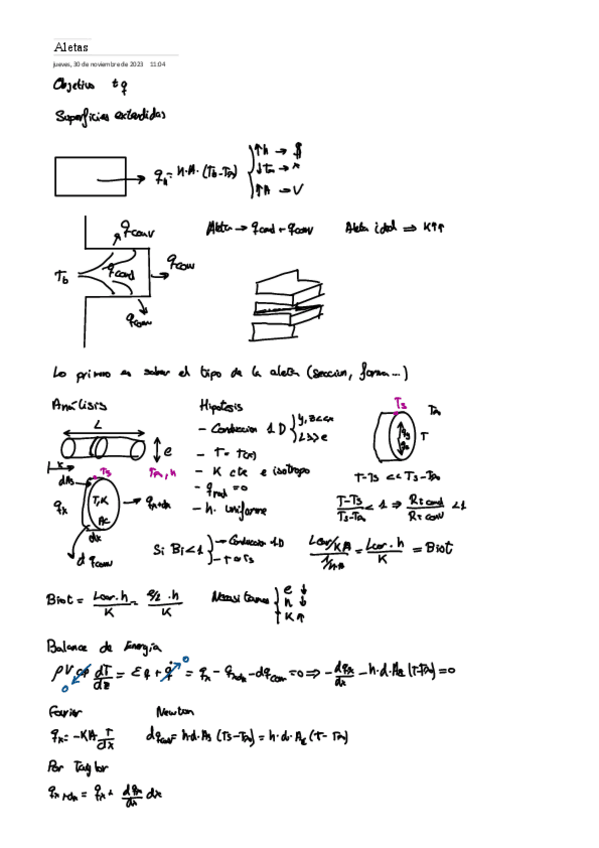 Aletas
jueves, 30 de noviembre de 2023 11:04
Objetivo ↑ q
Superficies extendidas
q_h = h·A·(T_b-T_∞) { ↑h → $
↓T_∞ → ×
↑A → V
q_conv
Aleta → q_cond + q_conv Aleta ideal ⇒ K↑↑
T_b q_cond q_conv
q_conv
Lo primo es saber el tipo de la aleta (sección, forma...)
Análisis Hipotesis
L
e
x
T_s T_∞, h
dA_s
q_x T, K A_c q_x+dx
dx
d q_conv
- Conduccion 1D { y, z <<x
L >> e
- T = T(x)
- K cte e isotropo
- q_rad = 0
- h uniforme
T_s T_∞
T
T-T_s << T_s-T_∞
(T-T_s)/(T_s-T_∞) < 1 ⇒ R_t cond/R_t conv < 1
Si Bi<1 } → Conduccion 1D
→ T ≈ T_s
(L_car/KA)/(1/hA) = L_car·h/K = Biot
Biot = L_car·h/K = e/2·h/K Necesitamos { e ↓
h ↓
K ↑
Balance de Energía
ρV cp dT/dz = Σq + q̇ = q_x - q_x+dx - dq_conv = 0 ⇒ -dq_x/dx - h·d·A_s (T-T_∞) = 0
0 0
Fourier Newton
q_x = -KA T/dx dq_conv = h·d·A_s (T_s-T_∞) = h·d·A_s (T-T_∞)
Por Taylor
q_x+dx = q_x + dq_x/dx dx